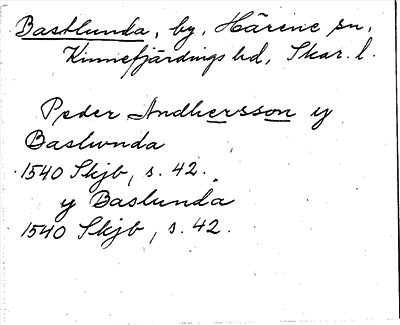 Bastlunda, by, Härene sn,
Kinnefjärdings hd, Skar. l.
Peder Andhersson y
Baslwnda
1540 Skjb, s. 42.
y Baslunda
1540 Skjb, s. 42.